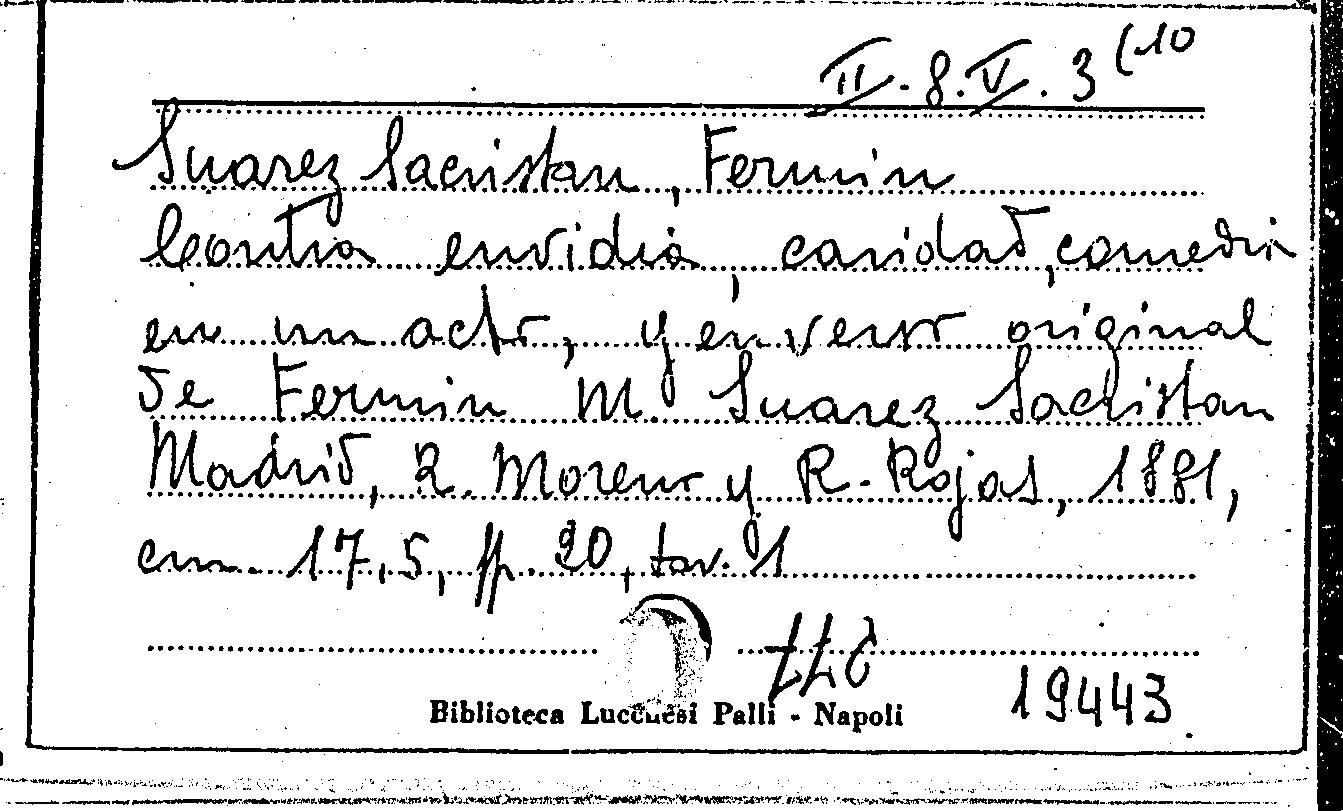 II. 8. V. 3 (10
Suarez Sacristan, Fermin
Contra envidia, caridad, comedia
en un acto, y en verso original
de Fermin M. Suarez Sacristan
Madrid, R. Moreno y R. Rojas, 1881,
cm. 17,5, pp. 20, tav. 1
19443
Biblioteca Lucchesi Palli - Napoli